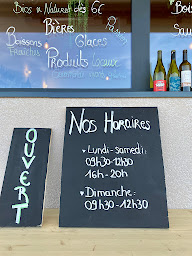 Bios & Naturels dès 6€
Bières
Boissons
Fraîches
Glaces
Produits Locaux
OUVERT
Nos Horaires
• Lundi - samedi:
09h30-12h30
16h - 20h
• Dimanche:
09h30 - 12h30